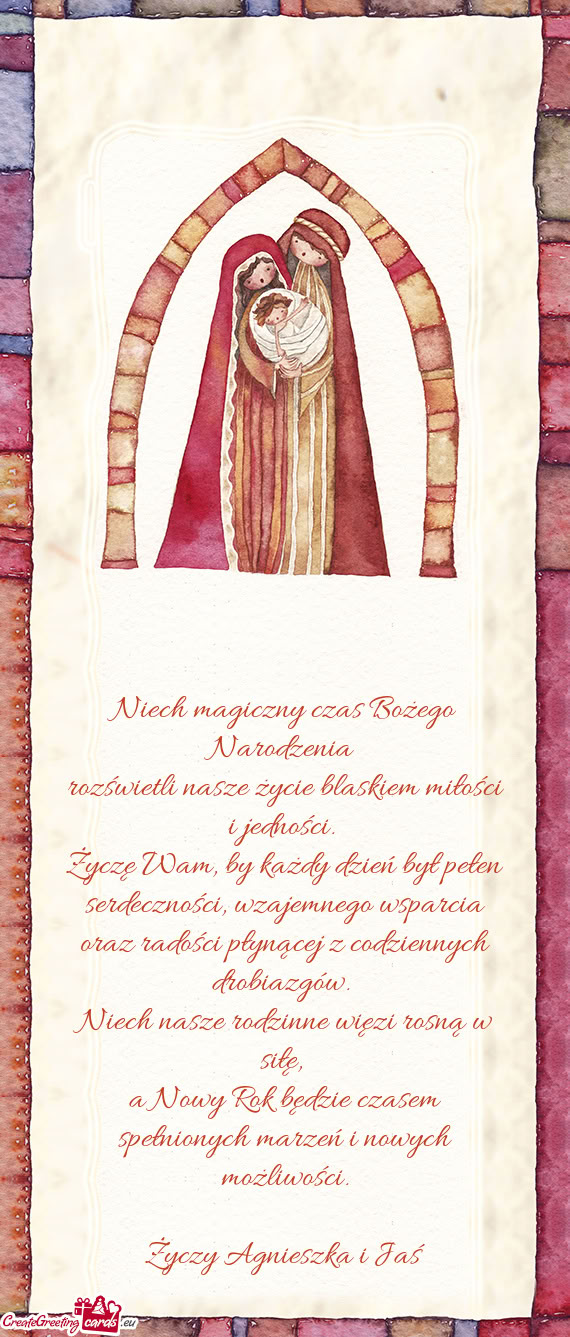 Niech magiczny czas Bożego
Narodzenia
rozświetli nasze życie blaskiem miłości
i jedności.
Życzę Wam, by każdy dzień był pełen
serdeczności, wzajemnego wsparcia
oraz radości płynącej z codziennych
drobiazgów.
Niech nasze rodzinne więzi rosną w
siłę,
a Nowy Rok będzie czasem
spełnionych marzeń i nowych
możliwości.
Życzy Agnieszka i Jaś
CreateGreeting cards .eu